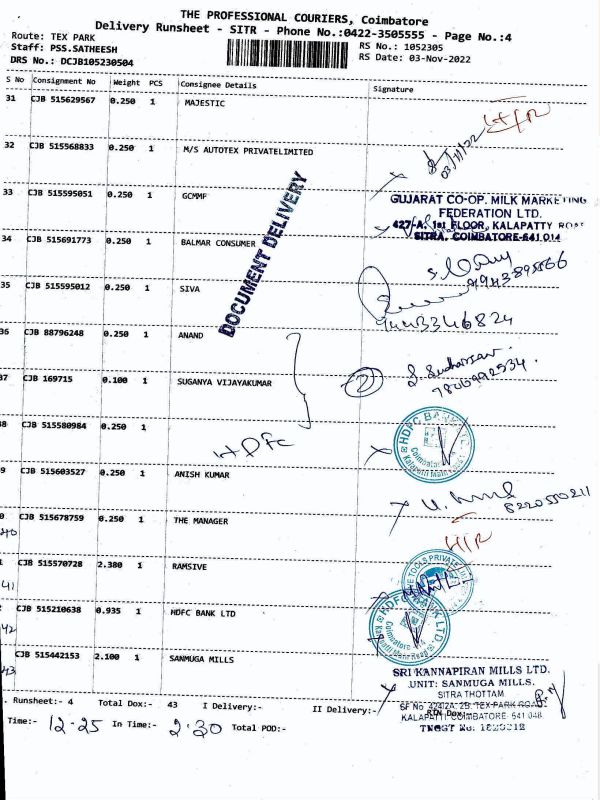 THE PROFESSIONAL COURIERS, Coimbatore
Delivery Runsheet - SITR - Phone No.:0422-3505555 - Page No.:4
Route: TEX PARK
Staff: PSS.SATHEESH
DRS No.: DCJB105230504
RS No.: 1052305
RS Date: 03-Nov-2022
S No Consignment No Weight PCS Consignee Details Signature
31 CJB 515629567 0.250 1 MAJESTIC
03/11/22
32 CJB 515568833 0.250 1 M/S AUTOTEX PRIVATELIMITED
33 CJB 515595051 0.250 1 GCMMF
GUJARAT CO-OP. MILK MARKETING
FEDERATION LTD.
427-A, 1st FLOOR, KALAPATTY ROAD
SITRA, COIMBATORE-641 014
34 CJB 515691773 0.250 1 BALMAR CONSUMER
DOCUMENT DELIVERY
35 CJB 515595012 0.250 1 SIVA
36 CJB 88796248 0.250 1 ANAND
37 CJB 169715 0.100 1 SUGANYA VIJAYAKUMAR
8 CJB 515580984 0.250 1
HDFC
HDFC BANK LTD
9 CJB 515603527 0.250 1 ANISH KUMAR
0 CJB 515678759 0.250 1 THE MANAGER
40
H/R
CJB 515570728 2.380 1 RAMSIVE
41
CJB 515210638 0.935 1 HDFC BANK LTD
42
HDFC BANK LTD.
CJB 515442153 2.100 1 SANMUGA MILLS
43
SRI KANNAPIRAN MILLS LTD.
UNIT: SANMUGA MILLS.
SITRA THOTTAM
SF No. 424/2A, 2B, TEX PARK ROAD
KALAPATTI COIMBATORE- 641 048
. Runsheet:- 4 Total Dox:- 43 I Delivery:- II Delivery:- RTN Dox:-
Time:- 12-25 In Time:- 2-30 Total POD:-